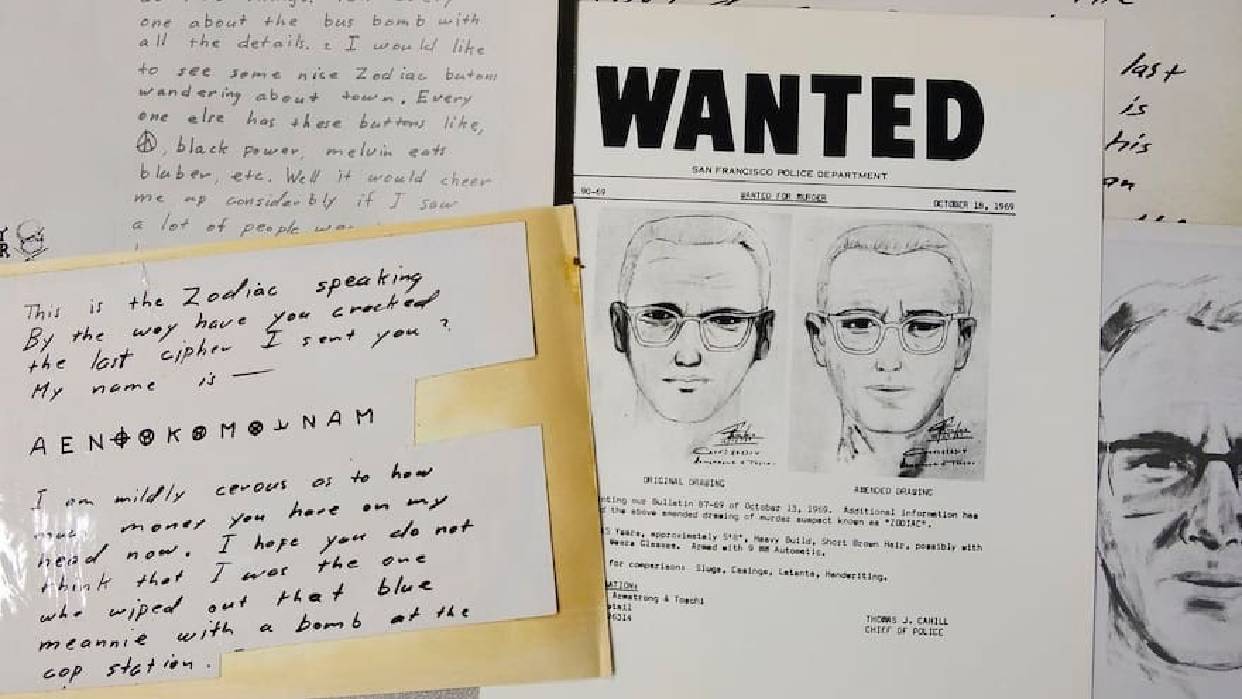 one about the bus bomb with
all the details. I would like
to see some nice Zodiac butons
wandering about town. Every
one else has these buttons like,
, black power, melvin eats
bluber, etc. Well it would cheer
me up considerbly if I saw
a lot of people
This is the Zodiac speaking
By the way have you cracked
the last cipher I sent you ?
My name is —
A E N ⌖ ⊗ K ⊗ M ⊗ ⊥ N A M
I am mildly cerous as to how
much money you have on my
head now. I hope you do not
think that I was the one
who wiped out that blue
meannie with a bomb at the
cop station.
WANTED
SAN FRANCISCO POLICE DEPARTMENT
90-69 WANTED FOR MURDER OCTOBER 18, 1969
ORIGINAL DRAWING AMENDED DRAWING
our Bulletin 87-69 of October 13, 1969. Additional information has
the above amended drawing of murder suspect known as "ZODIAC".
Years, approximately 5'8", Heavy Build, Short Brown Hair, possibly with
Wears Glasses. Armed with 9 MM Automatic.
for comparison: Slugs, Casings, Latents, Handwriting.
Armstrong & Toschi
THOMAS J. CAHILL
CHIEF OF POLICE
last
is
his
an